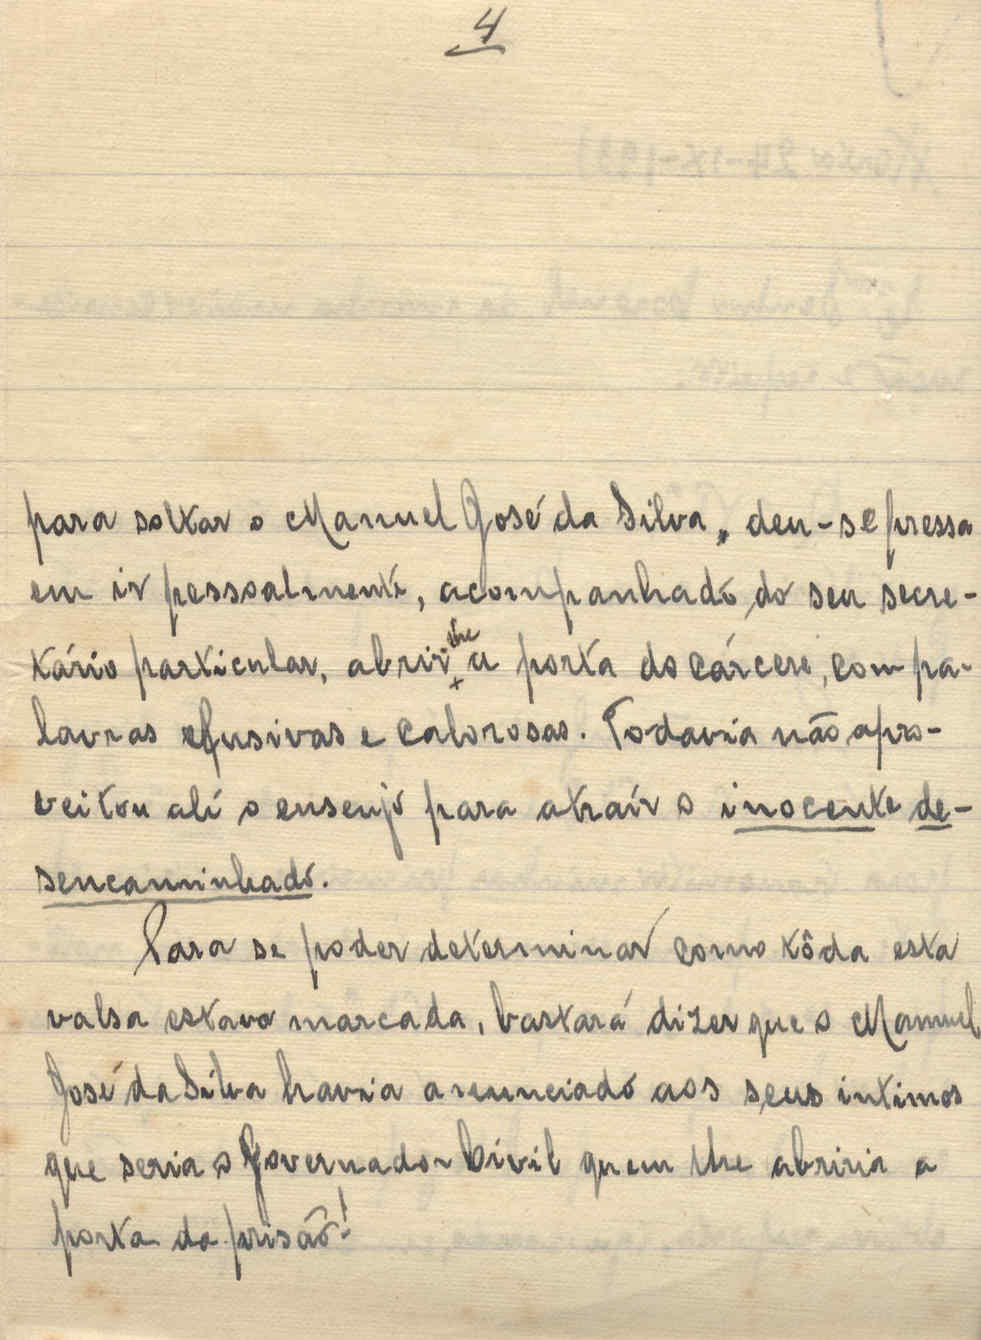 4
para soltar o Manuel José da Silva, deu-se pressa
em ir pessoalmente, acompanhado do seu secre-
tário particular, abrir-lhe a porta do cárcere, com pa-
lavras efusivas e calorosas. Todavia não apro-
veitou alí o ensenjo para atraír o inocente de-
sencaminhado.
Para se poder determinar como tôda esta
valsa estava marcada, bastará dizer que o Manuel
José da Silva havia anunciado aos seus intimos
que seria o Governador Civil quem lhe abriria a
porta da prisão!